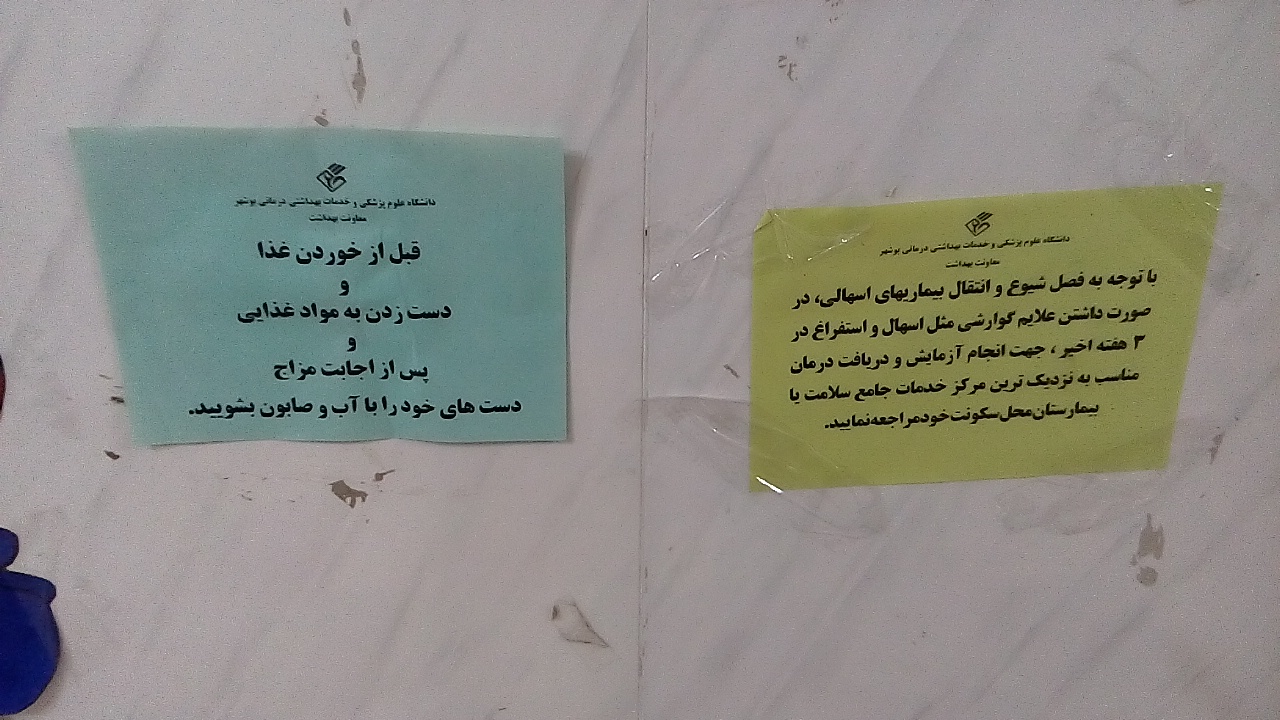 دانشگاه علوم پزشکی و خدمات بهداشتی درمانی بوشهر
معاونت بهداشت
قبل از خوردن غذا
و
دست زدن به مواد غذایی
و
پس از اجابت مزاج
دست های خود را با آب و صابون بشویید.
دانشگاه علوم پزشکی و خدمات بهداشتی درمانی بوشهر
معاونت بهداشت
با توجه به فصل شیوع و انتقال بیماریهای اسهالی، در
صورت داشتن علایم گوارشی مثل اسهال و استفراغ در
۳ هفته اخیر ، جهت انجام آزمایش و دریافت درمان
مناسب به نزدیک ترین مرکز خدمات جامع سلامت یا
بیمارستان محل سکونت خود مراجعه نمایید.